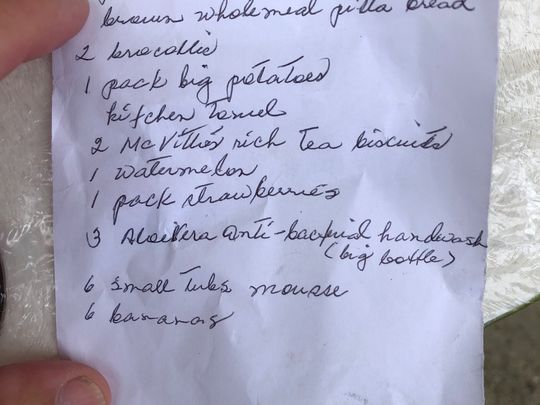 brown wholemeal pitta bread
2 brocollie
1 pack big potatoes
kitchen towel
2 McVities rich tea biscuits
1 watermelon
1 pack strawberries
3 AloeVera anti-bacterial handwash
(big bottle)
6 small tubs mousse
6 bananas